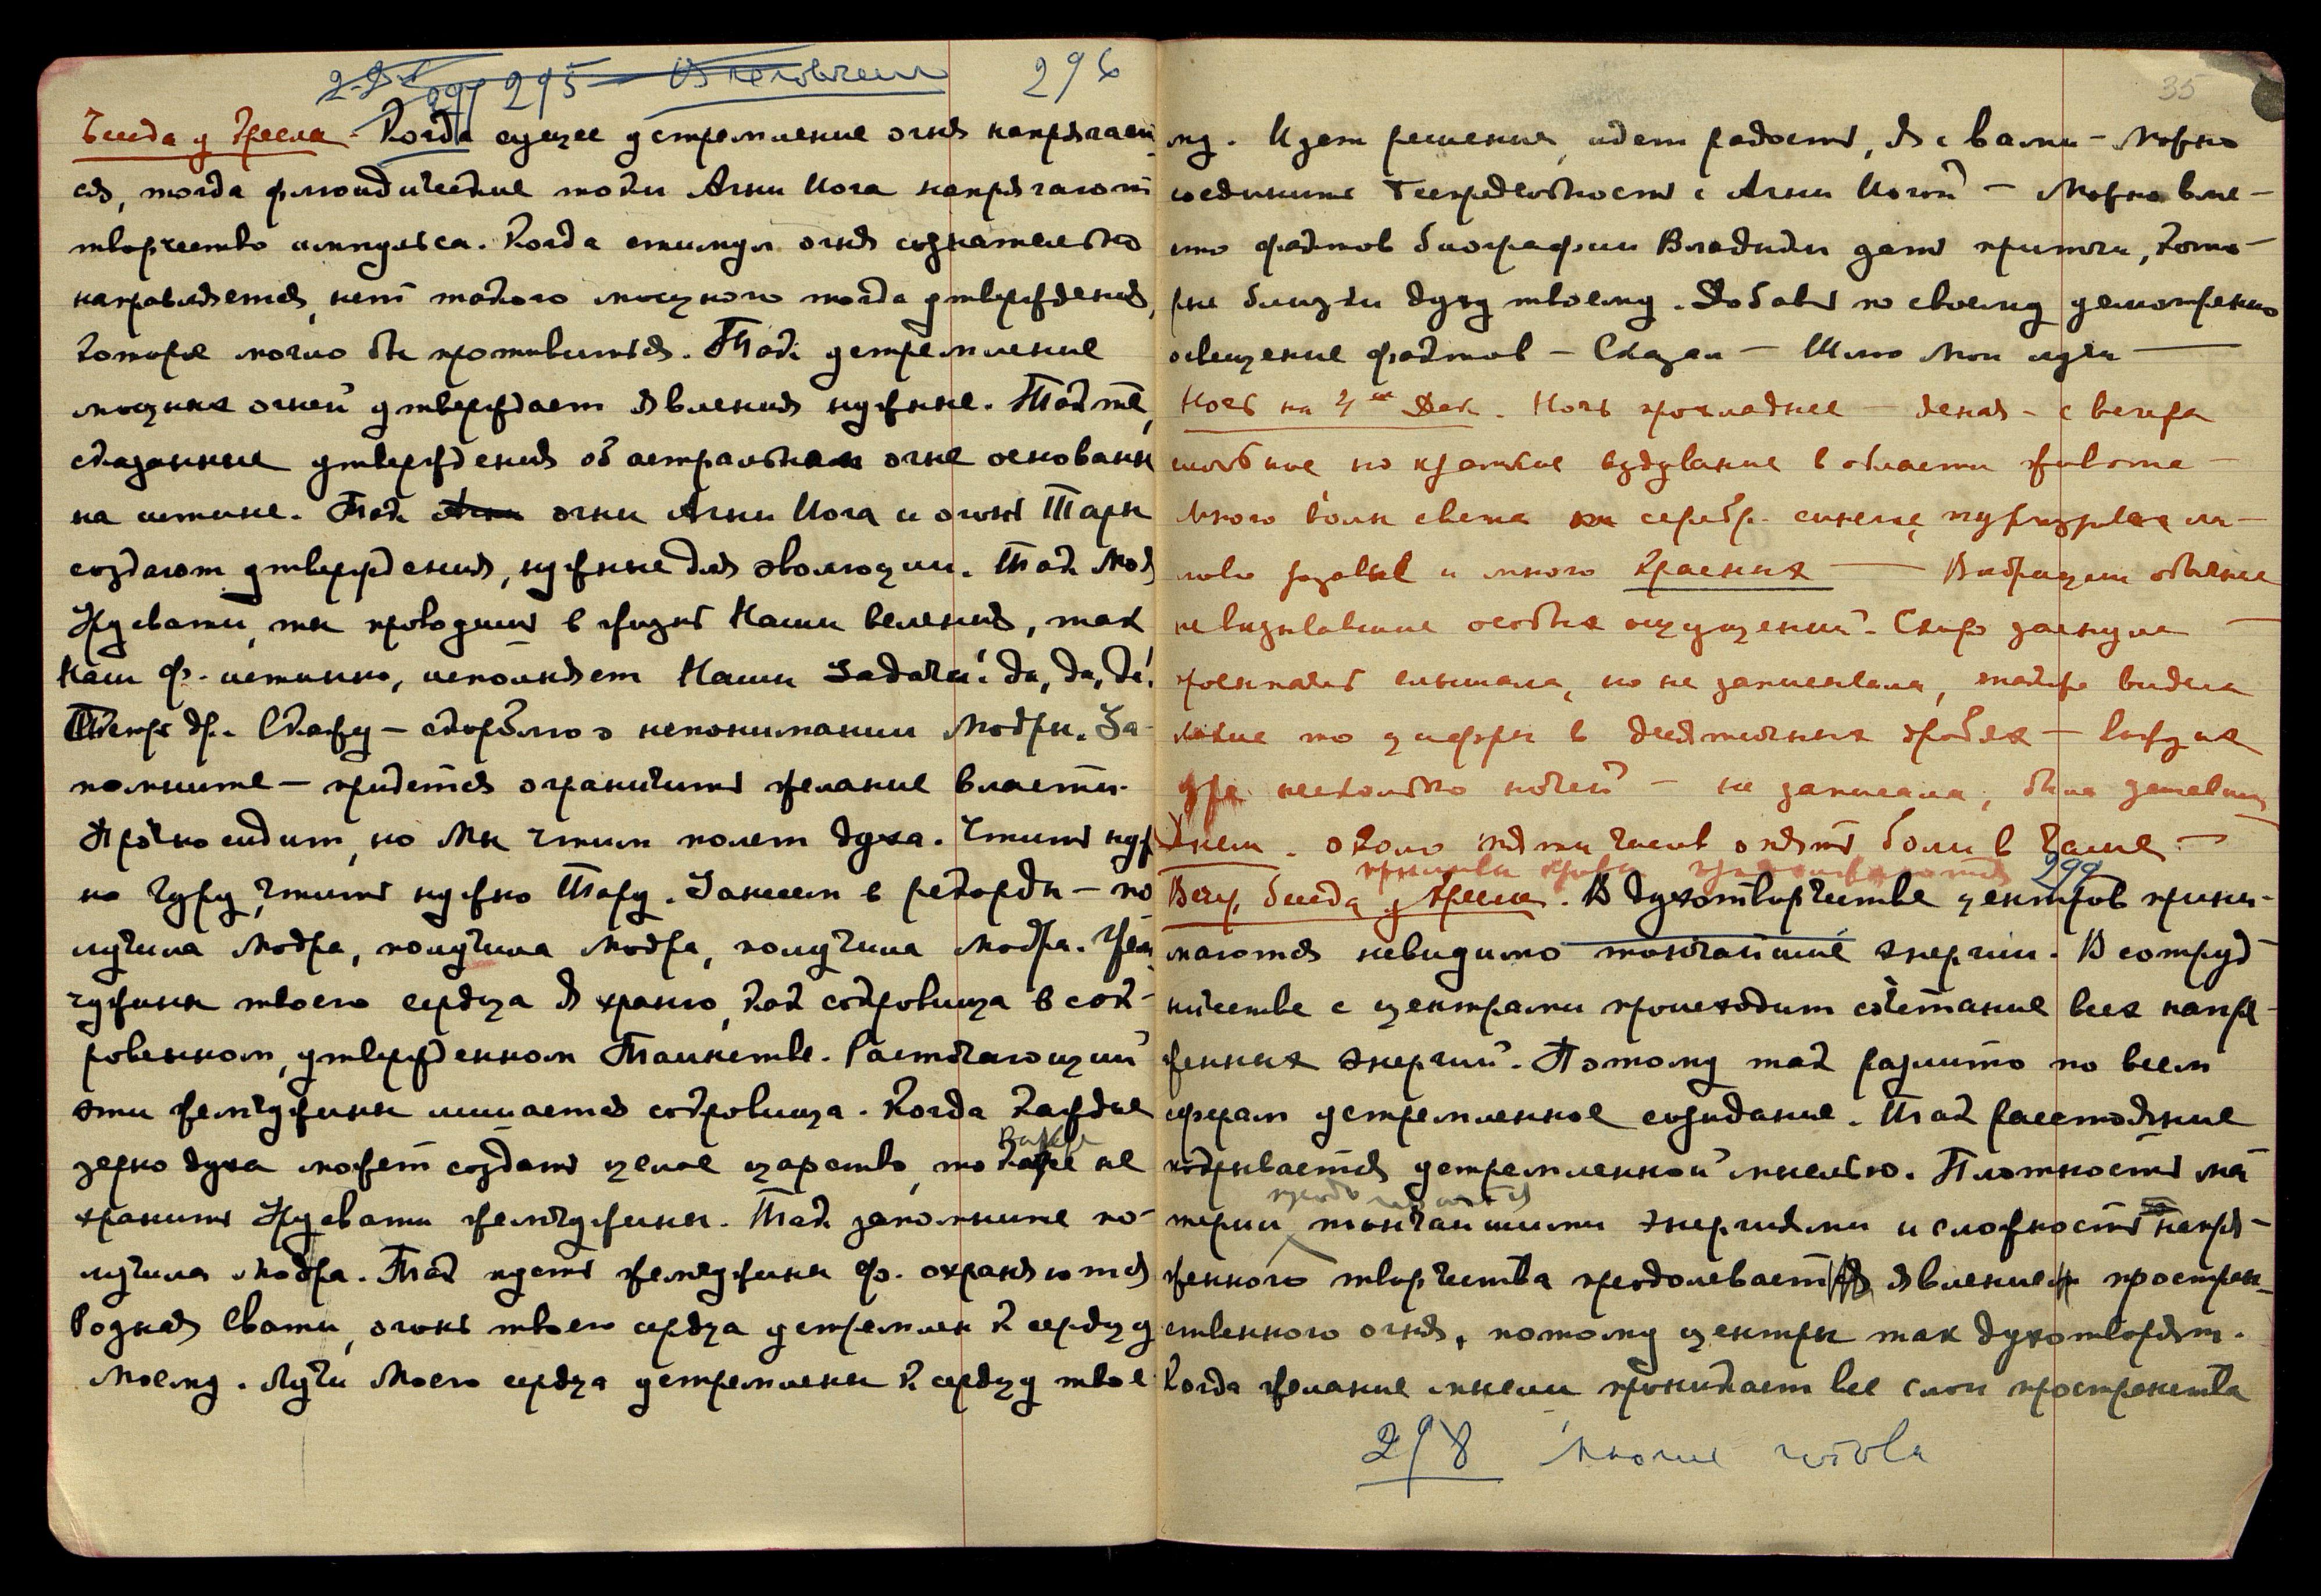 295 296
Беседа у кресла. Когда сущее устремление огня напрягает
ся, тогда флюидические токи Агни Йога напрягают
творчество импульса. Когда стимул огня сознательно
направляется, нет такого мощного тогда утверждения,
которое могло бы противиться. Так устремление
мощных огней утверждает явления нужные. Так те,
сказанные утверждения об астральном огне основаны
на истине. Так огни Агни Йога и огонь Тары
создают утверждения, нужные для эволюции. Так Моя
Урусвати, ты проводишь в жизнь Наши веления, так
Наш Ф. истинно, исполняет Наши Задачи! Да, да, да!
Теперь др. Скажу – скорблю о непонимании Модры. За-
помните – придется ограничить желание власти.
Прочно сидит, но Мы чтим полет духа. Чтить нуж
но Гуру, чтить нужно Тару. Занесем в рекорды – по
лучила Модра, получила Модра, получила Модра. Жем
чужины твоего сердца Я храню, как сокровища в сок-
ровенном, утвержденном Таинстве. Расточающий
эти жемчужины лишается сокровища. Когда каждое
зерно духа может создать целое царство, то как же не
хранить Урусвати жемчужины. Так запомните по-
лучила Модра. Так пусть жемчужины Ф. охраняются
Родная Свати, огонь твоего сердца устремлен к сердцу
Моему. Лучи Моего сердца устремлены к сердцу твое
35
му. Идет решение, идет радость, Я с вами – Можно
соединить Беспредельность с Агни Йогой – Можно вме-
сто фактов биографии Владыки дать притчи, кото-
рые близки духу твоему. Добавь по своему усмотрению
освещение фактов – Сказал – Шлю Мои лучи —
Ночь на 4ое Дек. Ночь прохладнее — с вечера
но краткие вздувание в области живота –
Много волн света серебр. синего, пурпурового ли-
лово розовые и много красных — Вибрации обычные
не вызывавшие особых ощущений. Скоро заснула —
слышала, но не записывала, также видела
какие то цифры в десятичных дробях –
уже несколько ночей – не записала, была уставши
Днем. около пяти часов опять боли в Чаше —
приливы крови продолжаются 299
Веч. беседа у кресла. В духотворчестве центров прини-
маются невидимо тончайшие энергии. В сотруд-
ничестве с центрами происходит сочетание всех напря-
женных энергий. Потому так разлито по всем
сферам устремленное созидание. Так расстояние
покрывается устремленной мыслью. Плотность ма
терии тончайшими энергиями и сложность напря-
женного творчества преодолевает явление простран-
ственного огня, потому центры так духотворят.
Когда желание мысли проникает все слои пространства
298